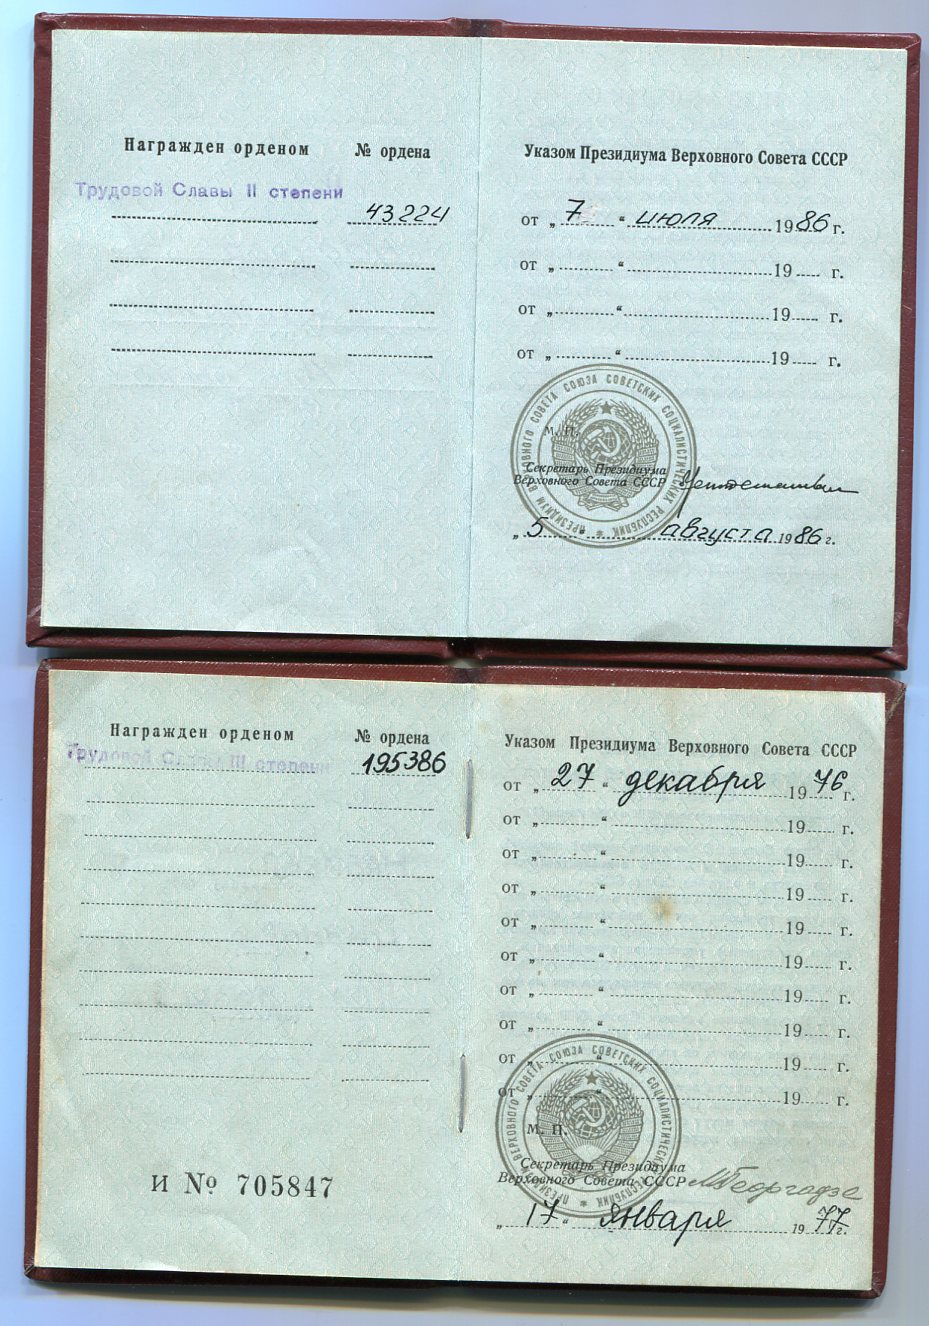 Награжден орденом № ордена
Трудовой Славы II степени 43224
Указом Президиума Верховного Совета СССР
от „ 7 “ июля 1986 г.
от „ “ 19 г.
от „ “ 19 г.
от „ “ 19 г.
ПРЕЗИДИУМ ВЕРХОВНОГО СОВЕТА СОЮЗА СОВЕТСКИХ СОЦИАЛИСТИЧЕСКИХ РЕСПУБЛИК
М. П.
Секретарь Президиума
Верховного Совета СССР
„ 5 “ августа 1986 г.
Награжден орденом № ордена
Трудовой Славы III степени 195386
И № 705847
Указом Президиума Верховного Совета СССР
от „ 27 “ декабря 1976 г.
от „ “ 19 г.
от „ “ 19 г.
от „ “ 19 г.
от „ “ 19 г.
от „ “ 19 г.
от „ “ 19 г.
от „ “ 19 г.
от „ “ 19 г.
от „ “ 19 г.
ПРЕЗИДИУМ ВЕРХОВНОГО СОВЕТА СОЮЗА СОВЕТСКИХ СОЦИАЛИСТИЧЕСКИХ РЕСПУБЛИК
М. П.
Секретарь Президиума
Верховного Совета СССР М Георгадзе
„ 17 “ января 1977 г.